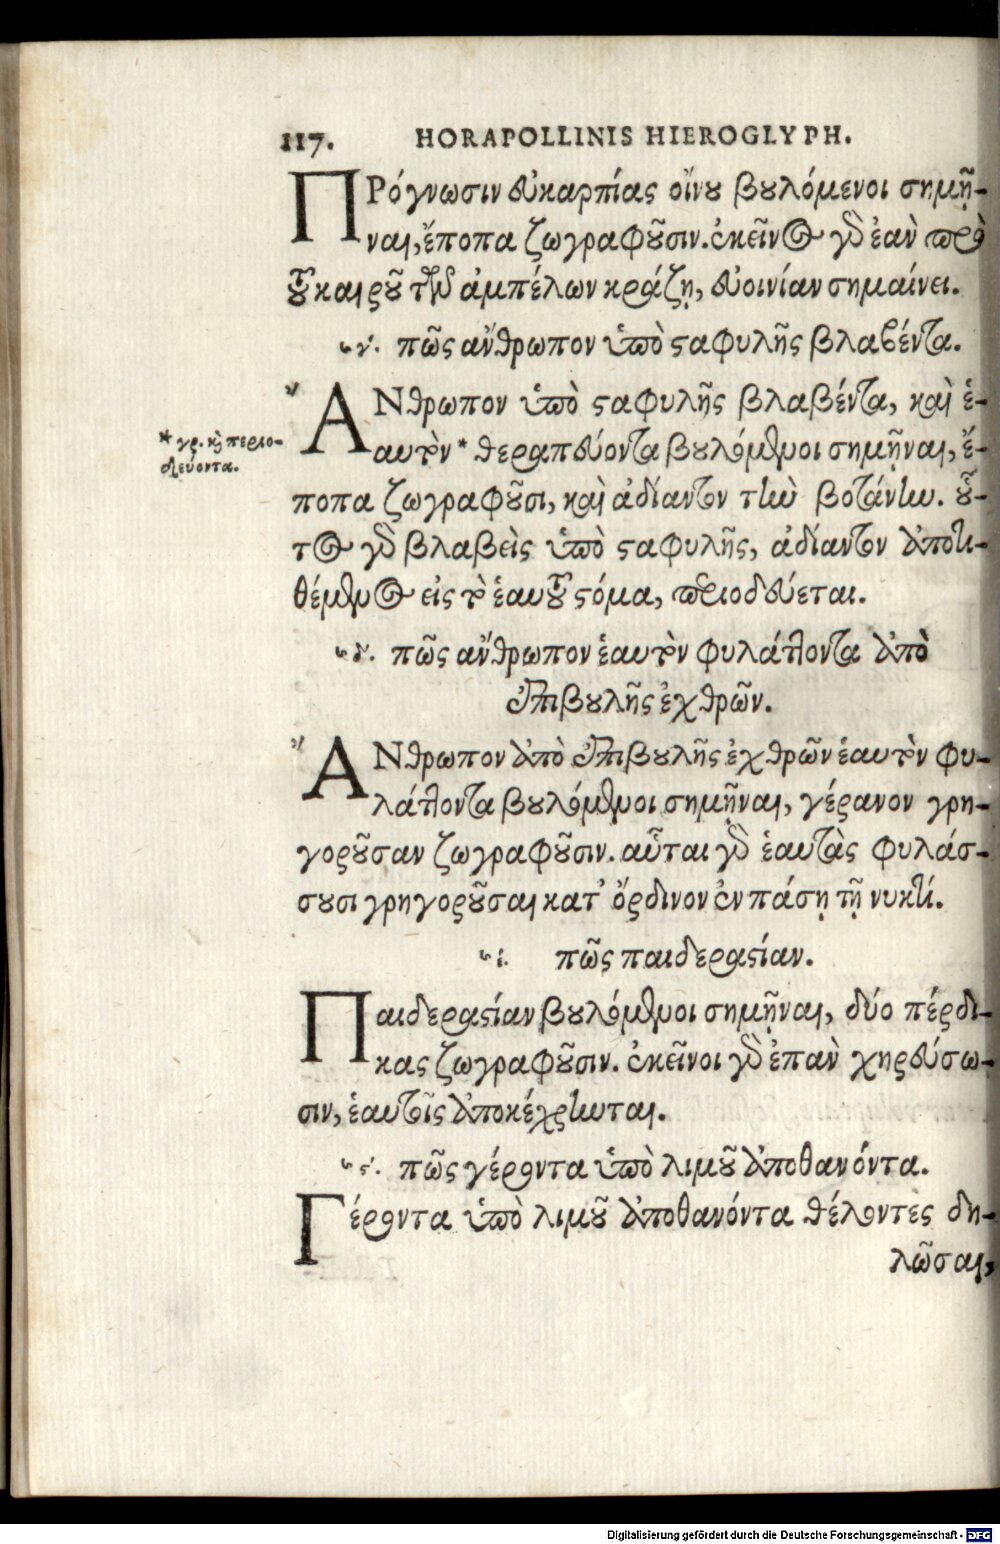 117. HORAPOLLINIS HIEROGLYPH.
ΠΡόγνωσιν εὐκαρπίας οἴνου βουλόμενοι σημῆ-
ναι, ἔποπα ζωγραφοῦσιν. ἐκεῖνος γὸ ἐὰν πρὸ
τοῦ καιροῦ τῶν ἀμπέλων κράζῃ, εὐοινίαν σημαίνει.
ϟγ΄. πῶς ἄνθρωπον ὑπὸ σαφυλῆς βλαβέντα.
ΑΝθρωπον ὑπὸ σαφυλῆς βλαβέντα, καὶ ἑ-
αυτὸν * θεραπεύοντα βουλόμενοι σημῆναι, ἔ-
* γρ. κὴ περιο-
δεύοντα.
ποπα ζωγραφοῦσι, καὶ ἀδίαντον τὴν βοτάνην. οὗ-
τος γὸ βλαβεὶς ὑπὸ σαφυλῆς, ἀδίαντον ἀποτι-
θέμενος εἰς τὸ ἑαυτοῦ στόμα, περιοδεύεται.
ϟδ. πῶς ἄνθρωπον ἑαυτὸν φυλάττοντα ἀπὸ
ἐπιβουλῆς ἐχθρῶν.
ΑΝθρωπον ἀπὸ ἐπιβουλῆς ἐχθρῶν ἑαυτὸν φυ-
λάττοντα βουλόμενοι σημῆναι, γέρανον γρη-
γοροῦσαν ζωγραφοῦσιν. αὗται γὸ ἑαυτὰς φυλάσ-
σουσι γρηγοροῦσαι κατ' ὄρδινον ἐν πάσῃ τῇ νυκτί.
πῶς παιδεραστίαν.
Παιδεραστίαν βουλόμενοι σημῆναι, δύο πέρδι-
κας ζωγραφοῦσιν. ἐκεῖνοι γὸ ἐπὰν χηρεύσω-
σιν, ἑαυτοῖς ἀποκέχρηνται.
ϟϛ΄. πῶς γέροντα ὑπὸ λιμοῦ ἀποθανόντα.
Γέροντα ὑπὸ λιμοῦ ἀποθανόντα θέλοντες δη-
λῶσαι,
Digitalisierung gefördert durch die Deutsche Forschungsgemeinschaft - DFG